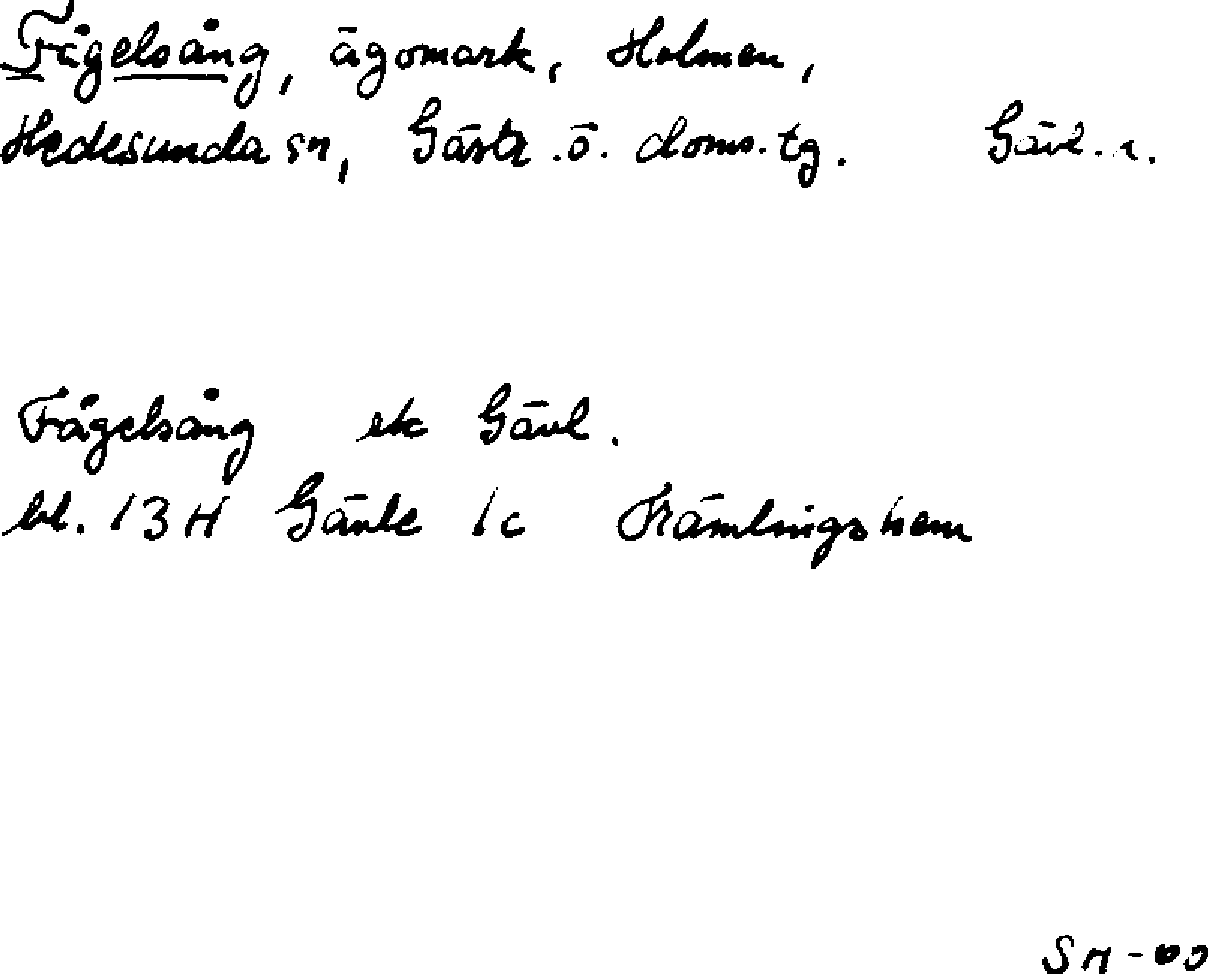 Fågelsång, ägomark, Holmen,
Hedesunda sn, Gästr. ö. doms. tg. Gävl. l.
Fågelsång ek Gävl.
bl. 13 H Gävle 1c Främlingshem
SM-00